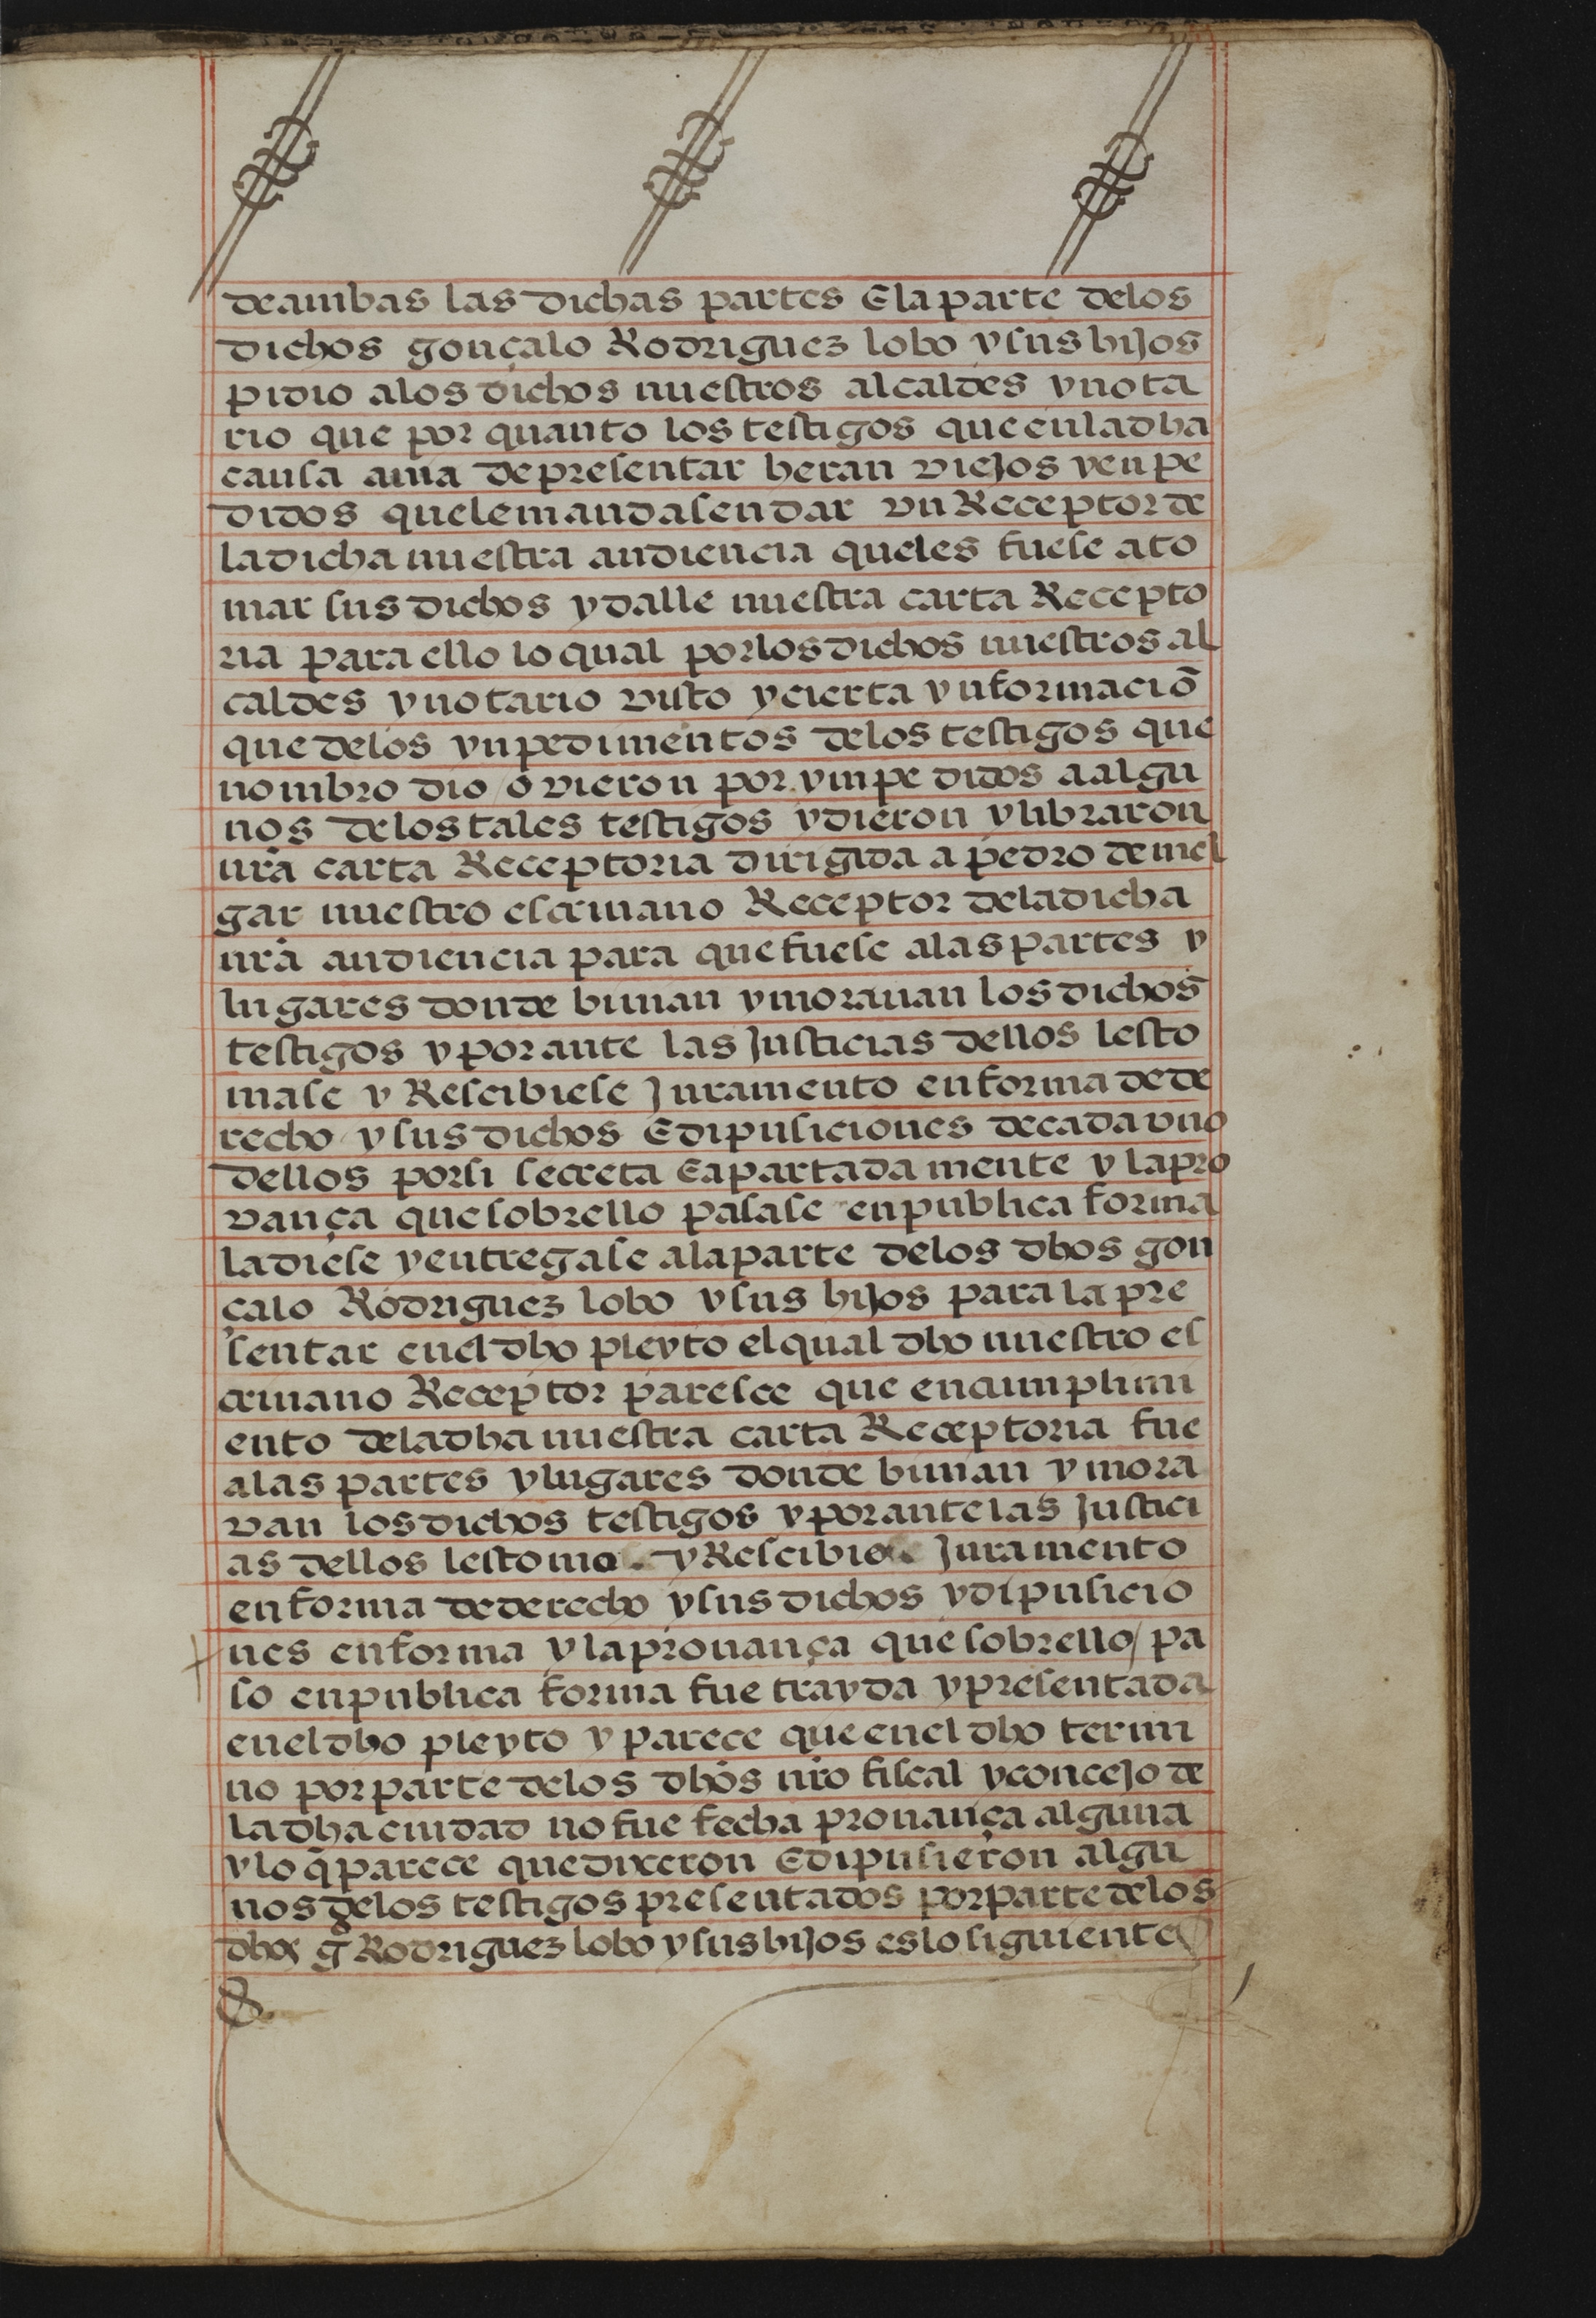 de ambas las dichas partes E la parte delos
dichos gonçalo Rodriguez lobo y sus hijos
pidio alos dichos nuestros alcaldes y nota
rio que por quanto los testigos que en la dha
causa auia de presentar heran viejos y enpe
didos que le mandasen dar vn Receptor de
la dicha nuestra audiencia que les fuese a to
mar sus dichos y dalle nuestra carta Recepto
ria para ello lo qual por los dichos nuestros al
caldes y notario visto y cierta ynformaciō
que delos ynpedimentos delos testigos que
nombro dio / o vieron por ympedidos a algu
nos delos tales testigos y dieron y libraron
nrā carta Receptoria dirigida a pedro de mel
gar nuestro escriuano Receptor dela dicha
nrā audiencia para que fuese alas partes y
lugares donde biuian y morauan los dichos
testigos y por ante las Justicias dellos les to
mase y Rescibiese Juramento en forma de de
recho / y sus dichos E dipusiciones de cada vno
dellos por si secreta E apartada mente y la pro
vança que sobrello pasase en publica forma
la diese y entregase ala parte delos dhos gon
çalo Rodriguez lobo y sus hijos para la pre
sentar en el dho pleyto el qual dho nuestro es
criuano Receptor paresce que en cumplimi
ento dela dha nuestra carta Receptoria fue
alas partes y lugares donde biuian y mora
van los dichos testigos y por ante las Justici
as dellos les tomo y Rescibio Juramento
en forma de derecho y sus dichos y dipusicio
nes en forma y la prouança que sobrello / pa
so en publica forma fue trayda y presentada
en el dho pleyto y parece que en el dho termi
no por parte delos dhos nrō fiscal y concejo de
la dha ciudad no fue fecha prouança alguna
y lo q̄ parece que dixeron E dipusieron algu
nos delos testigos presentados por parte delos
dhos gº Rodriguez lobo y sus hijos es lo siguiente